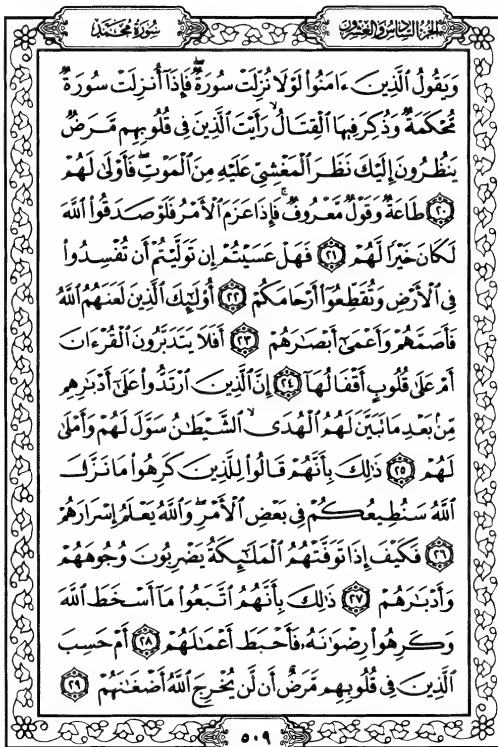 الجزء السادس والعشرون
سورة محمد
وَيَقُولُ ٱلَّذِينَ ءَامَنُوا۟ لَوْلَا نُزِّلَتْ سُورَةٌ ۖ فَإِذَآ أُنزِلَتْ سُورَةٌ
مُّحْكَمَةٌ وَذُكِرَ فِيهَا ٱلْقِتَالُ ۙ رَأَيْتَ ٱلَّذِينَ فِى قُلُوبِهِم مَّرَضٌ
يَنظُرُونَ إِلَيْكَ نَظَرَ ٱلْمَغْشِىِّ عَلَيْهِ مِنَ ٱلْمَوْتِ ۖ فَأَوْلَىٰ لَهُمْ
﴿٢٠﴾ طَاعَةٌ وَقَوْلٌ مَّعْرُوفٌ ۚ فَإِذَا عَزَمَ ٱلْأَمْرُ فَلَوْ صَدَقُوا۟ ٱللَّهَ
لَكَانَ خَيْرًا لَّهُمْ ﴿٢١﴾ فَهَلْ عَسَيْتُمْ إِن تَوَلَّيْتُمْ أَن تُفْسِدُوا۟
فِى ٱلْأَرْضِ وَتُقَطِّعُوٓا۟ أَرْحَامَكُمْ ﴿٢٢﴾ أُو۟لَٰٓئِكَ ٱلَّذِينَ لَعَنَهُمُ ٱللَّهُ
فَأَصَمَّهُمْ وَأَعْمَىٰٓ أَبْصَٰرَهُمْ ﴿٢٣﴾ أَفَلَا يَتَدَبَّرُونَ ٱلْقُرْءَانَ
أَمْ عَلَىٰ قُلُوبٍ أَقْفَالُهَآ ﴿٢٤﴾ إِنَّ ٱلَّذِينَ ٱرْتَدُّوا۟ عَلَىٰٓ أَدْبَٰرِهِم
مِّنۢ بَعْدِ مَا تَبَيَّنَ لَهُمُ ٱلْهُدَى ۙ ٱلشَّيْطَٰنُ سَوَّلَ لَهُمْ وَأَمْلَىٰ
لَهُمْ ﴿٢٥﴾ ذَٰلِكَ بِأَنَّهُمْ قَالُوا۟ لِلَّذِينَ كَرِهُوا۟ مَا نَزَّلَ
ٱللَّهُ سَنُطِيعُكُمْ فِى بَعْضِ ٱلْأَمْرِ ۖ وَٱللَّهُ يَعْلَمُ إِسْرَارَهُمْ
﴿٢٦﴾ فَكَيْفَ إِذَا تَوَفَّتْهُمُ ٱلْمَلَٰٓئِكَةُ يَضْرِبُونَ وُجُوهَهُمْ
وَأَدْبَٰرَهُمْ ﴿٢٧﴾ ذَٰلِكَ بِأَنَّهُمُ ٱتَّبَعُوا۟ مَآ أَسْخَطَ ٱللَّهَ
وَكَرِهُوا۟ رِضْوَٰنَهُۥ فَأَحْبَطَ أَعْمَٰلَهُمْ ﴿٢٨﴾ أَمْ حَسِبَ
ٱلَّذِينَ فِى قُلُوبِهِم مَّرَضٌ أَن لَّن يُخْرِجَ ٱللَّهُ أَضْغَٰنَهُمْ ﴿٢٩﴾
٥٠٩